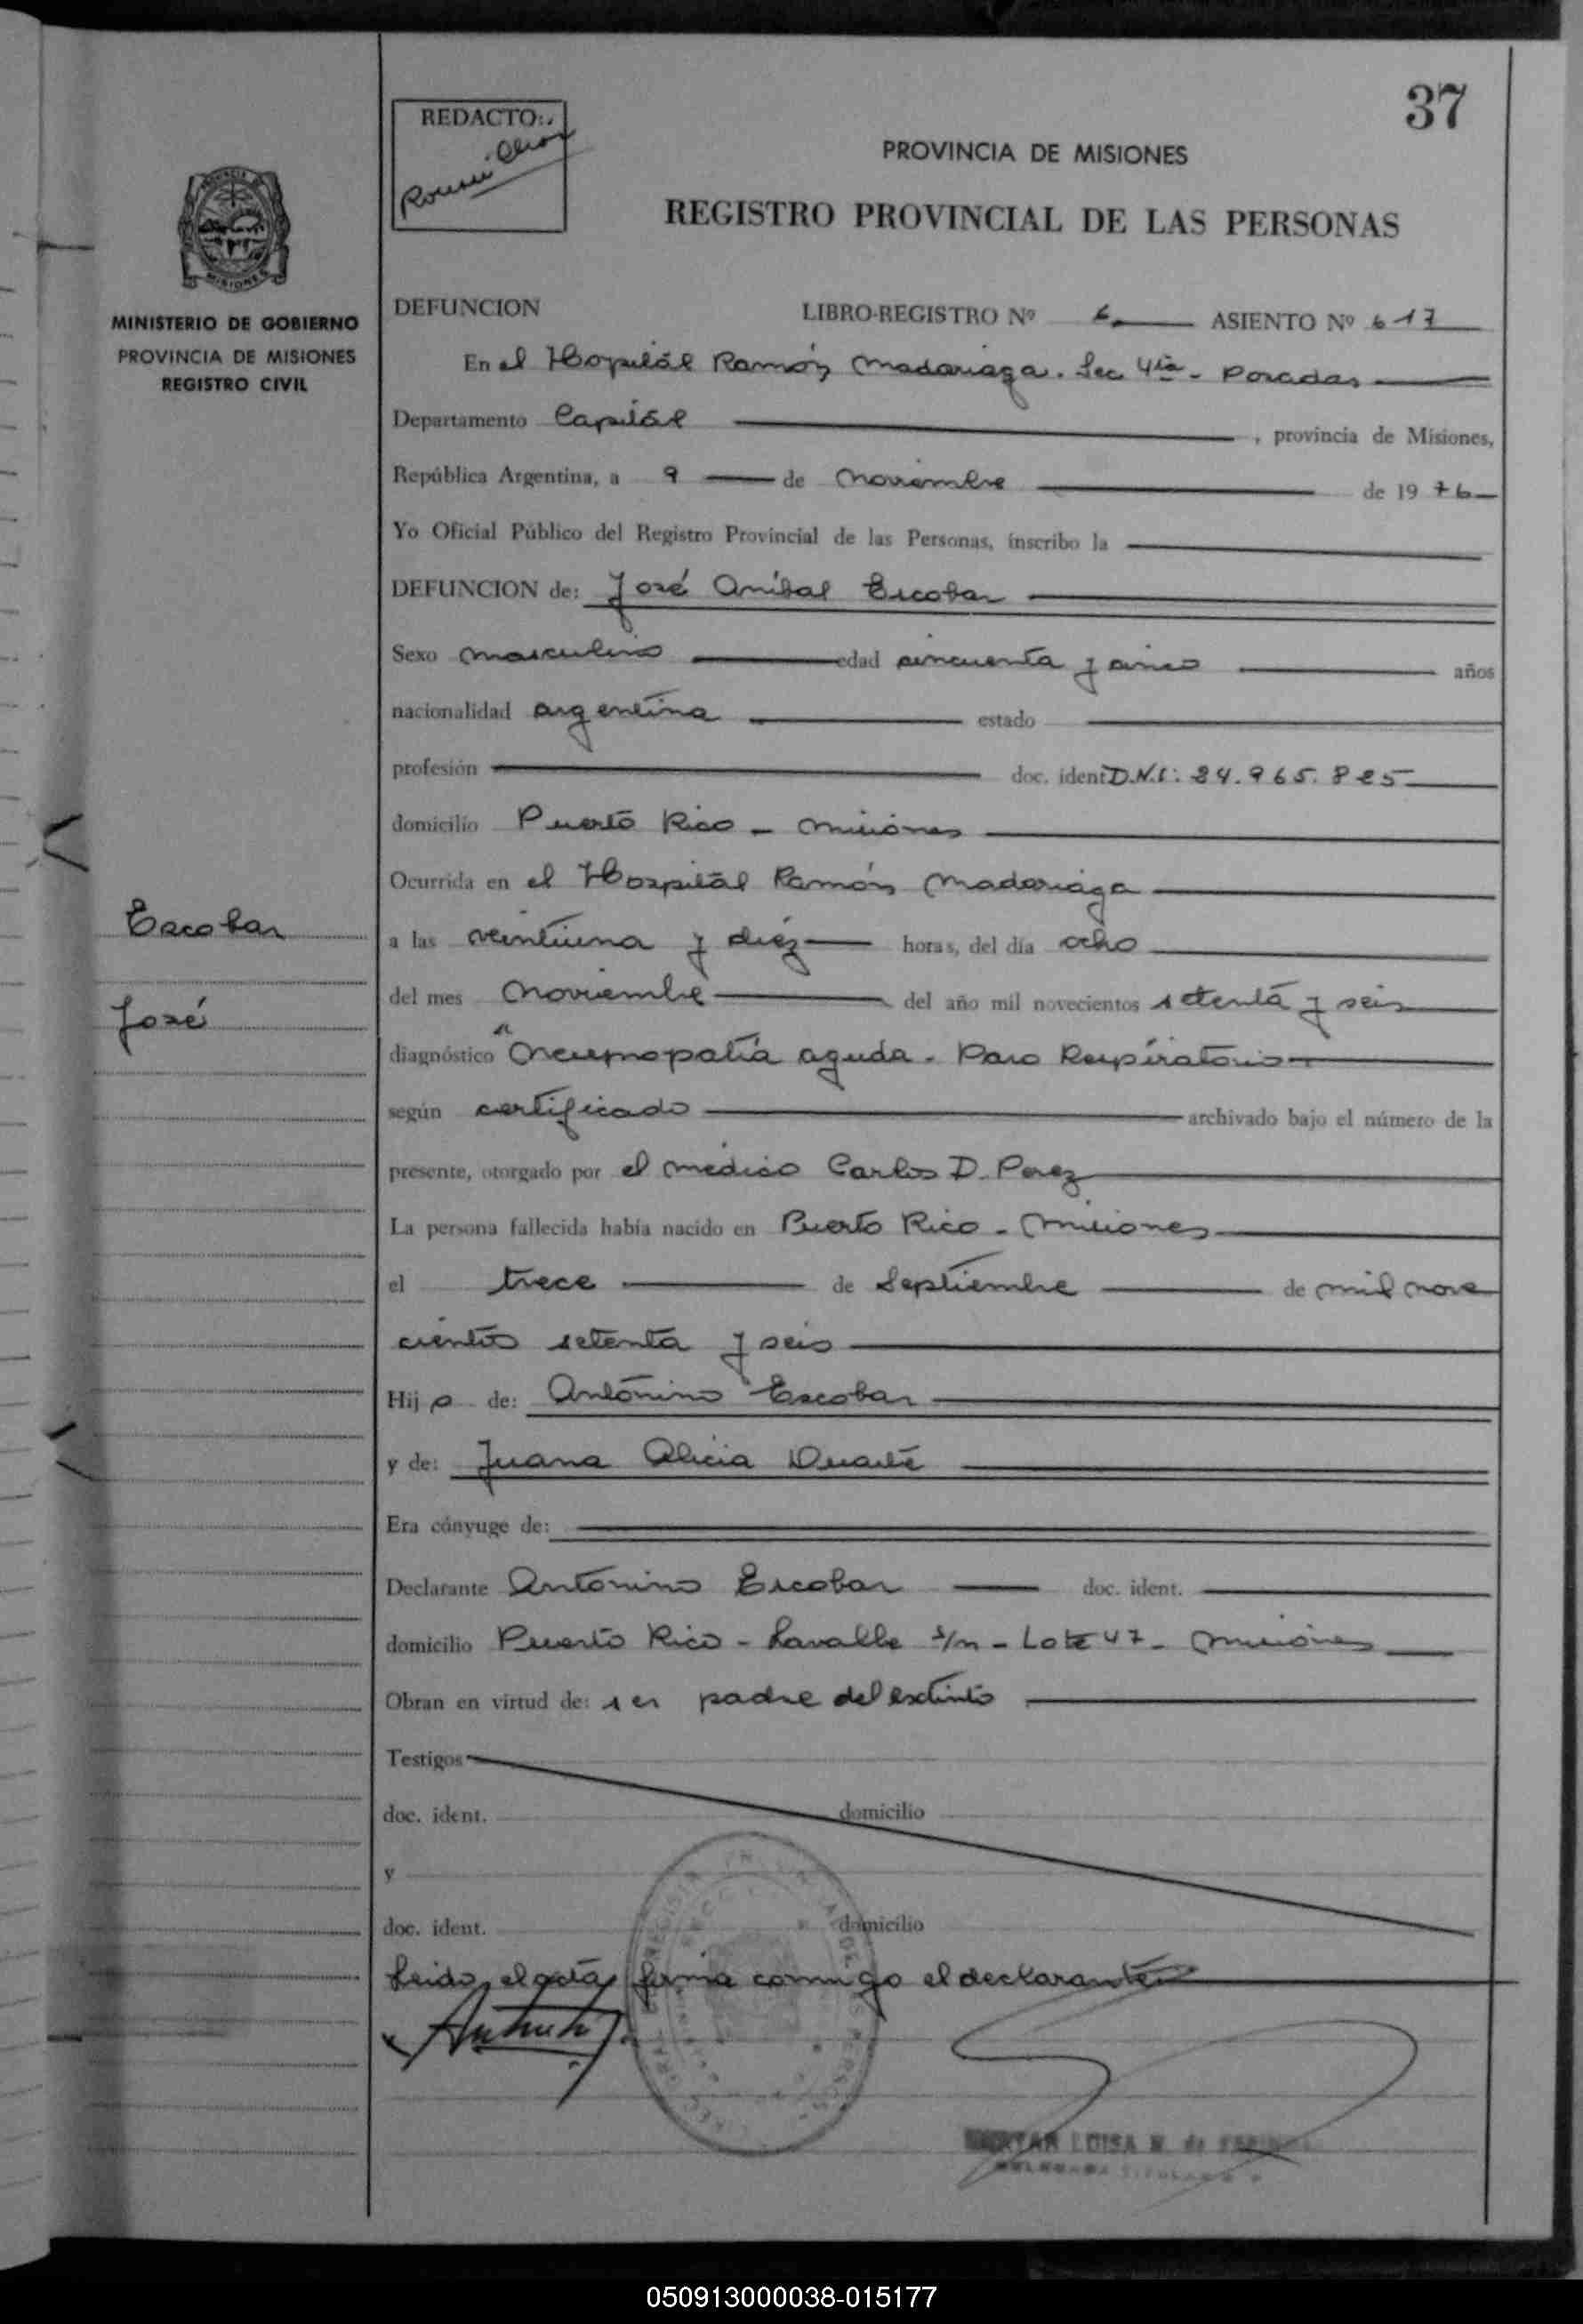 37
REDACTO:
PROVINCIA DE MISIONES
REGISTRO PROVINCIAL DE LAS PERSONAS
MINISTERIO DE GOBIERNO
PROVINCIA DE MISIONES
REGISTRO CIVIL
DEFUNCION LIBRO-REGISTRO Nº 6 ASIENTO Nº 617
En el Hospital Ramón Madariaga. Sec 4ta - Posadas
Departamento Capital , provincia de Misiones,
República Argentina, a 9 de noviembre de 1976
Yo Oficial Público del Registro Provincial de las Personas, inscribo la
DEFUNCION de: José Anibal Escobar
Sexo masculino edad cincuenta y cinco años
nacionalidad argentina estado
profesión doc. ident D.N.I: 24.965.825
domicilio Puerto Rico - Misiones
Ocurrida en el Hospital Ramón Madariaga
Escobar
a las veintiuna y diez horas, del día ocho
del mes Noviembre del año mil novecientos setenta y seis
José
diagnóstico "Neumopatía aguda - Paro Respiratorio
según certificado archivado bajo el número de la
presente, otorgado por el médico Carlos D. Perez
La persona fallecida había nacido en Puerto Rico - Misiones
el trece de Septiembre de mil nove
cientos setenta y seis
Hijo de: Antonino Escobar
y de: Juana Alicia Duarte
Era cónyuge de:
Declarante Antonino Escobar doc. ident.
domicilio Puerto Rico - Lavalle s/n - Lote 47 - Misiones
Obran en virtud de: ser padre del extinto
Testigos
doc. ident. domicilio
y
doc. ident. domicilio
Leida el acta, firma conmigo el declarante
LUISA
050913000038-015177